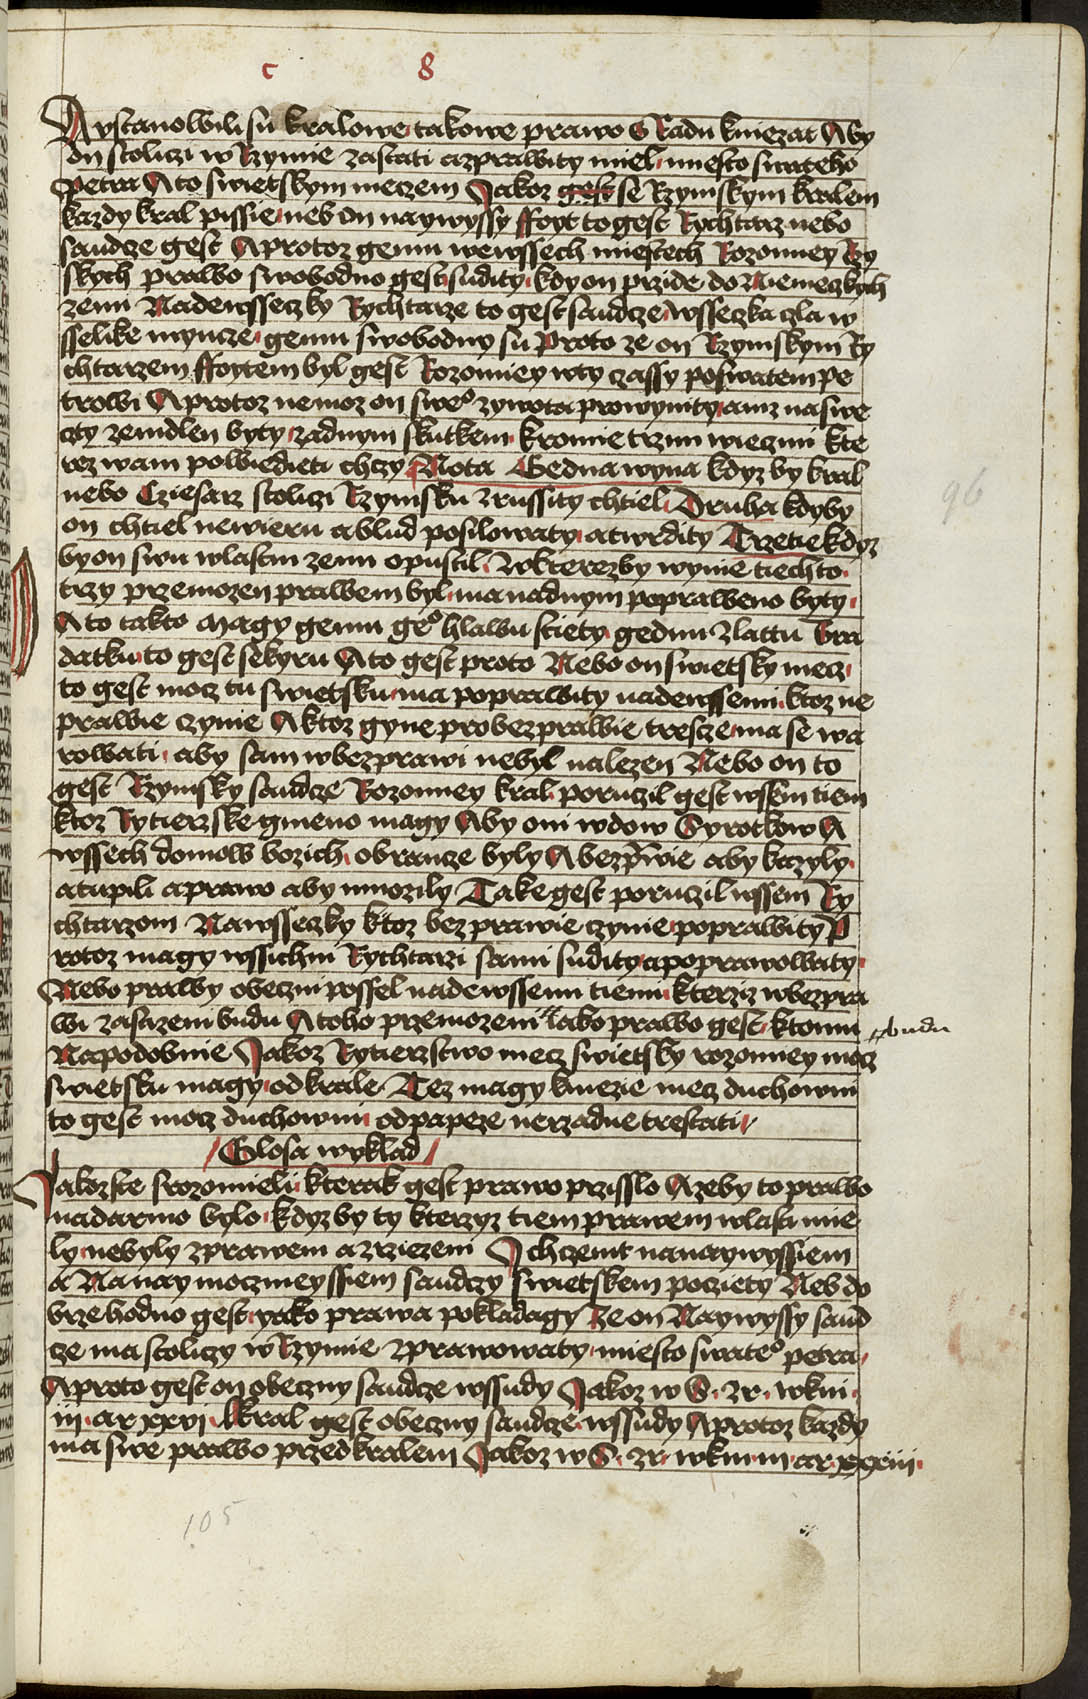 c 8
Aystanowili su kralowe takowe prawo S Radu kniezat Aby
on stoliczi w Rzymie zastati a zprawity miel miesto swateho
Petra A to swietskym meczem Jakoz gest se Rzymskym kralem
kazdy kral pissie neb on naywyssy ffoyt to gest Rychtarz nebo
saudcze gest A protoz gemu we wssech miestech Rozomiey Rzy
skych prawo swobodno gest sudity kdy on przide do Niemeczkych
zemi Nade wsseczky Rychtarze to gest saudcze wsseczka cla w
sselike myncze gemu swobodny su Proto ze on Rzymskym Ry
chtarzem ffoytem byl gest Rozomiey w ty czassy po swatem Pe
trowi A protoz nemoz on sweº zywota prowynity aniz na swe
czty zemdlen byty zadnym skutkem kromie trzmi wieczmi kte
rez wam powiedieti chczy Nota Gedna wyna kdyz by kral
nebo Cziesarz stoliczi Rzymsku zrussity chtiel Druha kdyby
on chtiel newieru a blud posilowaty a twrdity Trzetie kdyz
by on swu wlastni zenu opustil W kterezby wynie tiechto
trzy przemozen prawem byl ma nad nym popraweno byty
A to takto magy gemu geº hlawu stiety gednu zlattu bra
datku to gest sekyru A to gest proto Nebo on swietsky mecz
to gest mocz tu swietsku ma poprawity nade wssemi ktoz ne
prawie czynie A ktoz gyne pro bezprawie tresce ma se wa
rowati aby sam w bezprawi nebyl nalezen Nebo on to
gest Rzymsky saudcze Rozomiey kral poruczil gest wssem tiem
ktoz Rytierzske gmeno magy Aby oni wdow Syrotkow A
wssech domow bozich obrancze byly A bezprawie aby kazyly
a tupili a prawo aby mnozily Take gest poruczil wssem Ry
chtarzom Na wsseczky ktoz bez prawie czynie poprawity P
rotoz magy wssichni Rychtarzi sami sudity a poprawowaty
Nebo prawy obeczni possel nade wssemi tiemi kterziz w bezpra
wi zastizeni budu A toho przemozeni Jako prawo gest ktomu
budu
Napodobnie Jakoz Rytierzstwo mecz swietsky rozomiey mocz
swietsku magy od krale Tez magy kniezie mecz duchowni
to gest mocz duchowni od papeze nerzadne trestati
Glosa wyklad
Jakozste srozomieli kterak gest prawo przisslo A zeby to prawo
nadarmo bylo kdyz by ty kterzyz tiem prawem wlasti mie
ly nebyly zprawem a zrziezeni I chczemt na naywyssiem
a Na nay moczneyssiem saudczy swietskem pocziety Neb do
brze hodno gest yako prawa pokladagy Ze on Naywyssy saud
cze ma stoliczy w Rzymie zprawowaty miesto swateº Petra
A proto gest on obeczny saudcze wssudy Jakoz w S. zr. w kni
iii ar xxvi Kral gest obeczny saudcze wssudy A protoz kazdy
ma swe prawo przed kralem Jakoz w S. zr w kni iii ar xxxiii
96
105